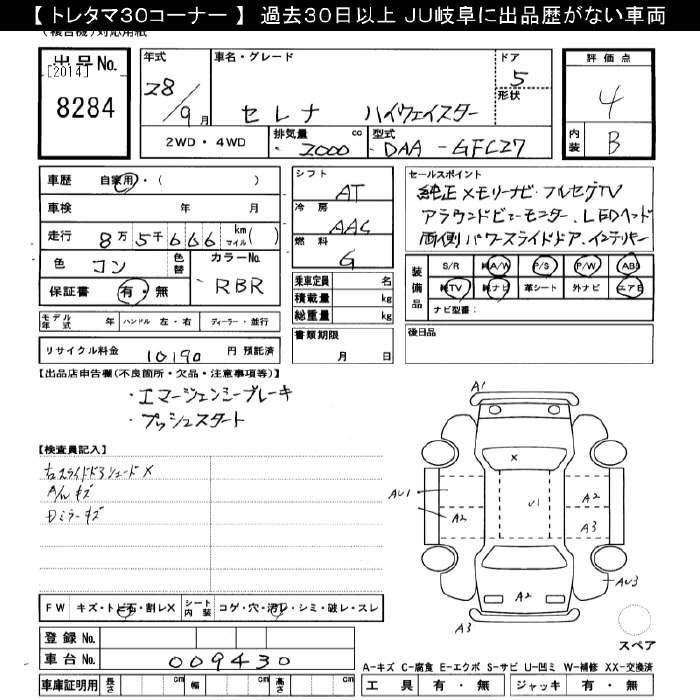 【 トレタマ30コーナー 】 過去30日以上 JU岐阜に出品歴がない車両
(複合機)対応用紙
出品No.
[2014]
8284
年式
28/9月
車名・グレード
セレナ ハイウェイスター
ドア
5
形状
2WD・4WD
排気量 cc
2000
型式
DAA-GFC27
評価点
4
内装
B
車歴 自家用・( )
車検 年 月
走行 8万5千666 km マイル( )
色 コン 色替
カラーNo.
RBR
保証書 有・無
モデル年式 年 ハンドル 左・右 ディーラー・並行
リサイクル料金 10190 円 預託済
シフト
AT
冷房
AAC
燃料
G
乗車定員 名
積載量 kg
総重量 kg
書類期限
月 日
セールスポイント
純正メモリーナビ・フルセグTV
アラウンドビューモニター、LEDヘッド
両側パワースライドドア、インテリキー
装備品
S/R 純A/W P/S P/W ABS
純TV 純ナビ 革シート 外ナビ エアB
ナビ型番:
後日品
【出品店申告欄(不良箇所・欠品・注意事項等)】
・エマージェンシーブレーキ
・プッシュスタート
【検査員記入】
右スライドドアシェード×
A/W キズ
Dミラーキズ
A1
×
AU1
A2
U1
A2
A3
A2
AU3
A3
スペア
FW キズ・トビ石・割レX シート内装 コゲ・穴・汚レ・シミ・破レ・スレ
登録No.
車台No. 009430
車庫証明用 長さ cm 幅 cm 高さ cm
A-キズ C-腐食 E-エクボ S-サビ U-凹ミ W-補修 XX-交換済
工具 有・無 ジャッキ 有・無